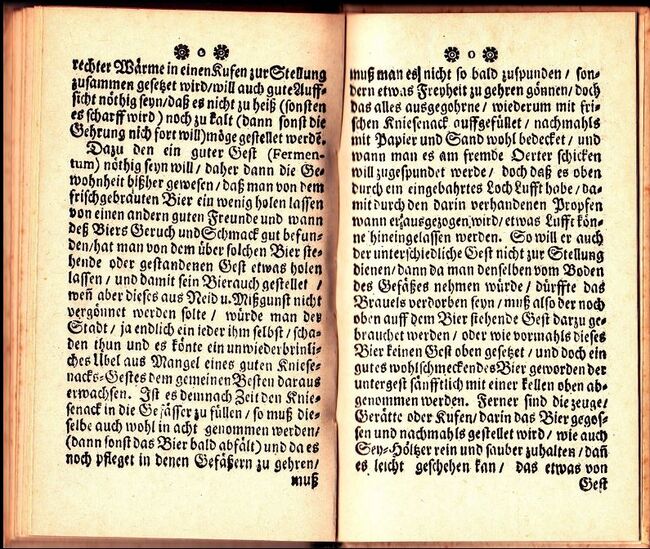 0
rechter Wärme in einen Kufen zur Stellung
zusammen gesetzet wird/ will auch gute Auff-
sicht nöthig seyn/ daß es nicht zu heiß (sonsten
es scharff wird) noch zu kalt (dann sonst die
Gehrung nich fort will) möge gestellet werdē.
Dazu den ein guter Gest (Fermen-
tum) nöthig seyn will/ daher dann die Ge-
wohnheit bißher gewesen/ daß man von dem
frisch gebrauten Bier ein wenig holen lassen
von einen andern guten Freunde und wann
deß Biers Geruch und Schmack gut befun-
den/ hat man von dem über solchen Bier ste-
hende oder gestandenen Gest etwas holen
lassen/ und damit sein Bier auch gestellet/
weñ aber dieses aus Neid u. Mißgunst nicht
vergönnet werden solte/ würde man der
Stadt/ ja endlich ein ieder ihm selbst/ scha-
den thun und es könte ein unwiederbrinli-
ches Übel aus Mangel eines guten Kniese-
nacks-Gestes dem gemeinen Besten daraus
erwachsen. Ist es demnach Zeit den Knie-
senack in die Gefässer zu füllen/ so muß die-
selbe auch wohl in acht genommen werden/
(dann sonst das Bier bald abfält) und da es
noch pfleget in denen Gefäßern zu gehren/
muß
0
muß man es nicht so bald zuspunden/ son-
dern etwas Freyheit zu gehren gönnen/ doch
das alles ausgegohrne/ wiederum mit fri-
schen Kniesenack auffgefüllet/ nachmahls
mit Papier und Sand wohl bedecket/ und
wann man es am fremde Oerter schicken
will zugespundet werde/ doch daß es oben
durch ein eingebahrtes Loch Lufft habe/ da-
mit durch den darin verhandenen Propfen
wann er ausgezogen wird/ etwas Lufft kön-
ne hineingelassen werden. So will er auch
der unterschiedliche Gest nicht zur Stellung
dienen/ dann da man denselben vom Boden
des Gefäßes nehmen würde/ dürffte das
Brauels verdorben seyn/ muß also der noch
oben auff dem Bier stehende Gest darzu ge-
brauchet werden/ oder wie vormahls dieses
Bier keinen Gest oben gesetzet/ und doch ein
gutes wohlschmeckendes Bier geworden der
untergest sänfftlich mit einer kellen oben ab-
genommen werden. Ferner sind die zeuge/
Gerätte oder Kufen/ darin das Bier gegos-
sen und nachmahls gestellet wird/ wie auch
Sey-Höltzer rein und sauber zuhalten/ dañ
es leicht geschehen kan/ das etwas von
Gest